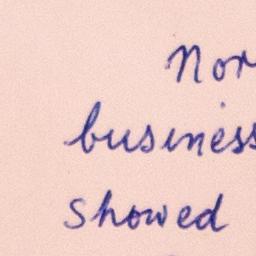 Nor
business
showed